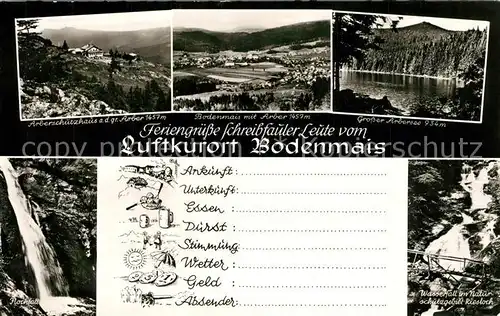 Arberschutzhaus a.d. gr. Arber 1457m
Bodenmais mit Arber 1457m
Großer Arbersee 934m
Feriengrüße schreibfauler Leute vom
Luftkurort Bodenmais
Ankunft:
Unterkunft:
Essen :
Durst :
Stimmung:
Wetter :
Geld :
Absender:
Rechfall
Wasserfall im Natur
schutzgebiet Riesloch